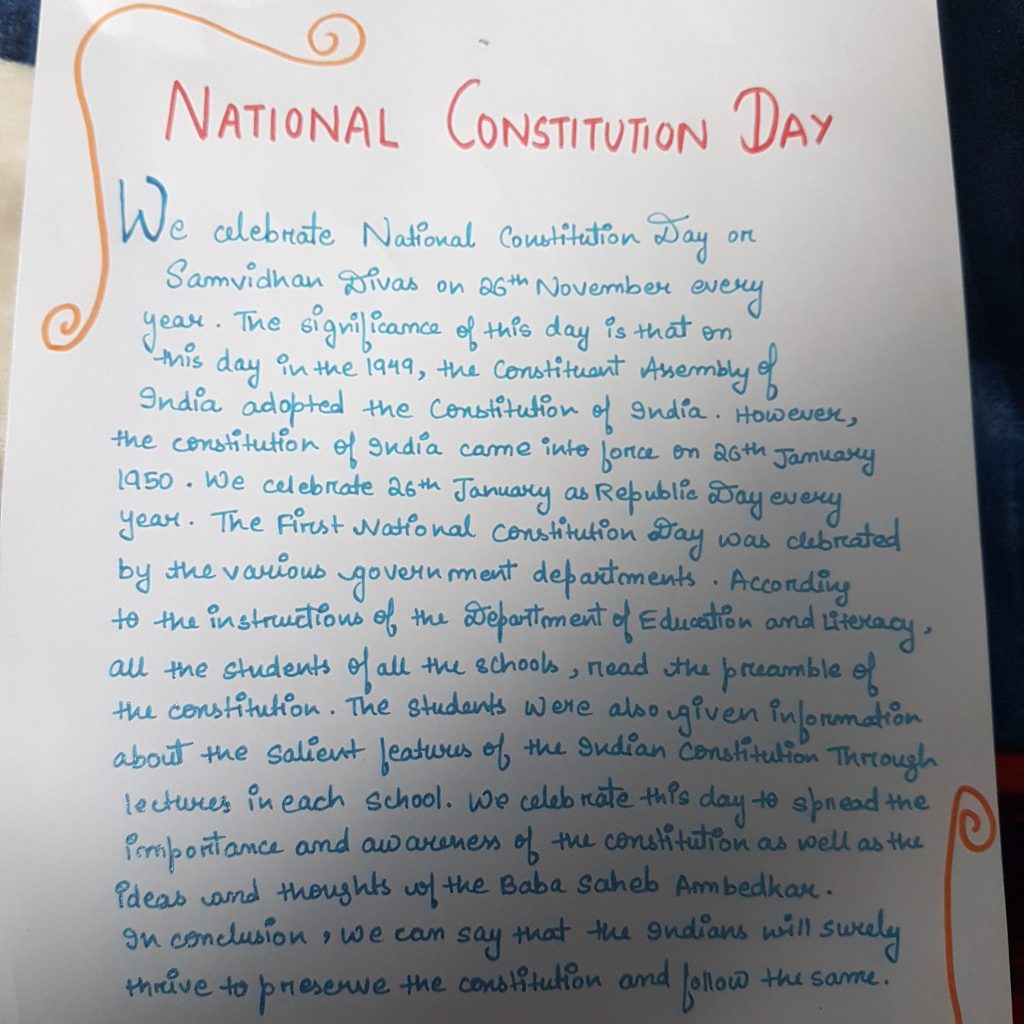 NATIONAL CONSTITUTION DAY
We celebrate National Constitution Day or
Samvidhan Divas on 26th November every
year. The significance of this day is that on
this day in the 1949, the Constituent Assembly of
India adopted the Constitution of India. However,
the constitution of India came into force on 26th January
1950. We celebrate 26th January as Republic Day every
year. The First National Constitution Day was clebrated
by the various government departments. According
to the instructions of the Department of Education and Literacy,
all the students of all the schools, read the preamble of
the constitution. The students were also given information
about the salient features of the Indian Constitution Through
lectures in each school. We celebrate this day to spread the
importance and awareness of the constitution as well as the
ideas and thoughts of the Baba Saheb Ambedkar.
In conclusion, we can say that the Indians will surely
thrive to preserve the constitution and follow the same.